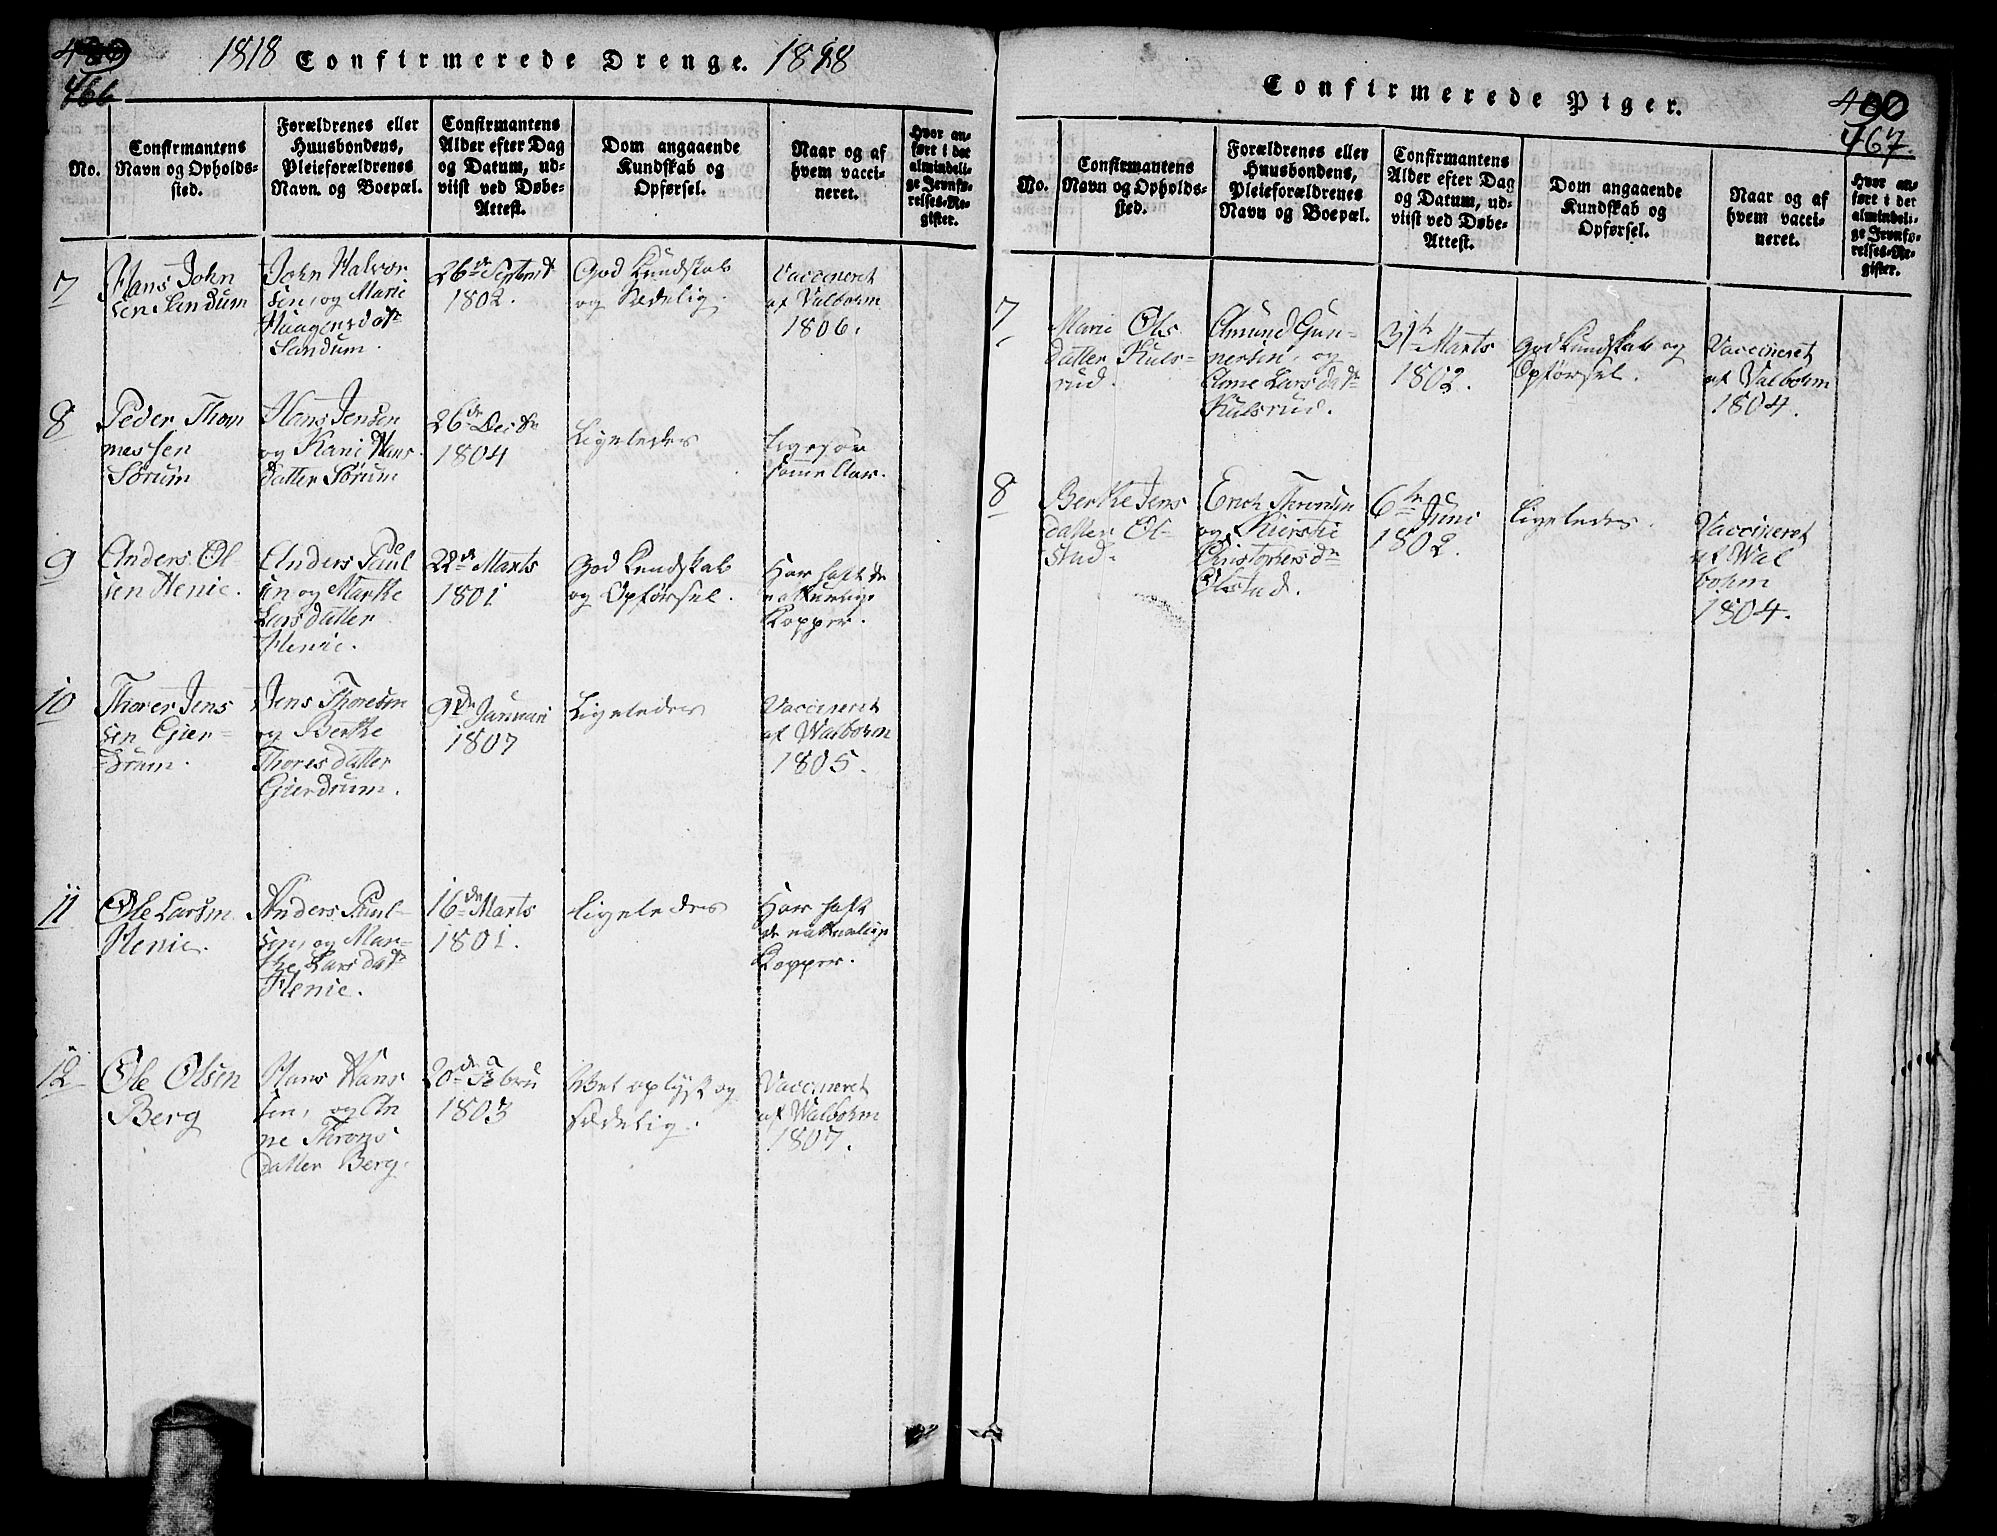 466
1818 Confirmerede Drenge. 1818
No.
Confirmantens
Navn og Opholds-
sted.
Forældrenes eller
Huusbondens,
Pleieforældrenes
Navn og Boepæl.
Confirmantens
Alder efter Dag
og Datum, ud-
viist ved Døbe-
Attest.
Dom angaaende
Kundskab og
Opførsel.
Naar og af
hvem vacci-
neret.
Hvor an-
ført i det
almindeli-
ge Jevnfø-
relses-Re-
gister.
7
Hans John
sen Sandum
John Halvor
sen, og Marie
Haagensdatr
Sandum.
26de Septembr
1802.
God Kundskab
og Sædelig.
Vaccineret
af Valbohm
1806.
8
Peder Thom
messen
Sörum
Hans Jensen
og Kari Hans
datter Sörum
26de Decbr
1804
Ligeledes
Ligesaa
samme Aar.
9
Anders Ol-
sen Henie.
Anders Paul
sen og Marthe
Larsdatter
Henie.
22de Marts
1801
God Kundskab
og Opførsel.
Har haft de
naturlige
Kopper.
10
Thorer Jens
sen Gier-
drum.
Jens Thoresen
og Berthe
Thoresdatter
Gierdrum.
9de Januari
1807
Ligeledes
Vaccineret
af Walbohm
1805.
11
Ole Larsen
Henie.
Anders Paul-
sen, og Mar-
the Larsdatr
Henie.
16de Marts
1801.
Ligeledes
Har haft
de naturlige
Kopper.
12
Ole Olsen
Berg
Hans Hans
sen, og An
ne Throns
datter Berg.
20de Febru
1803
Vel oplyst og
sædelig.
Vaccineret
af Walbohm
1807.
Confirmerede Piger.
467.
No.
Confirmantens
Navn og Opholds-
sted.
Forældrenes eller
Huusbondens,
Pleieforældrenes
Navn og Boepæl.
Confirmantens
Alder efter Dag
og Datum, ud-
viist ved Døbe-
Attest.
Dom angaaende
Kundskab og
Opførsel.
Naar og af
hvem vacci-
neret.
Hvor an-
ført i det
almindeli-
ge Jevnfø-
relses-Re-
gister.
7
Marie Ols
datter Kuls-
rud.
Amund Gun-
nersen, og
Anne Larsdatr
Kulsrud.
31te Marts
1802.
God Kundskab og
Opførsel.
Vaccineret
af Valbohm
1804.
8
Berthe Jens
datter Ol-
stad.
Erich Thronsen
og Kiersti
Christophersdr
Olstad.
6te Juni
1802.
Ligeledes.
Vaccineret
af Wal
bohm
1804.